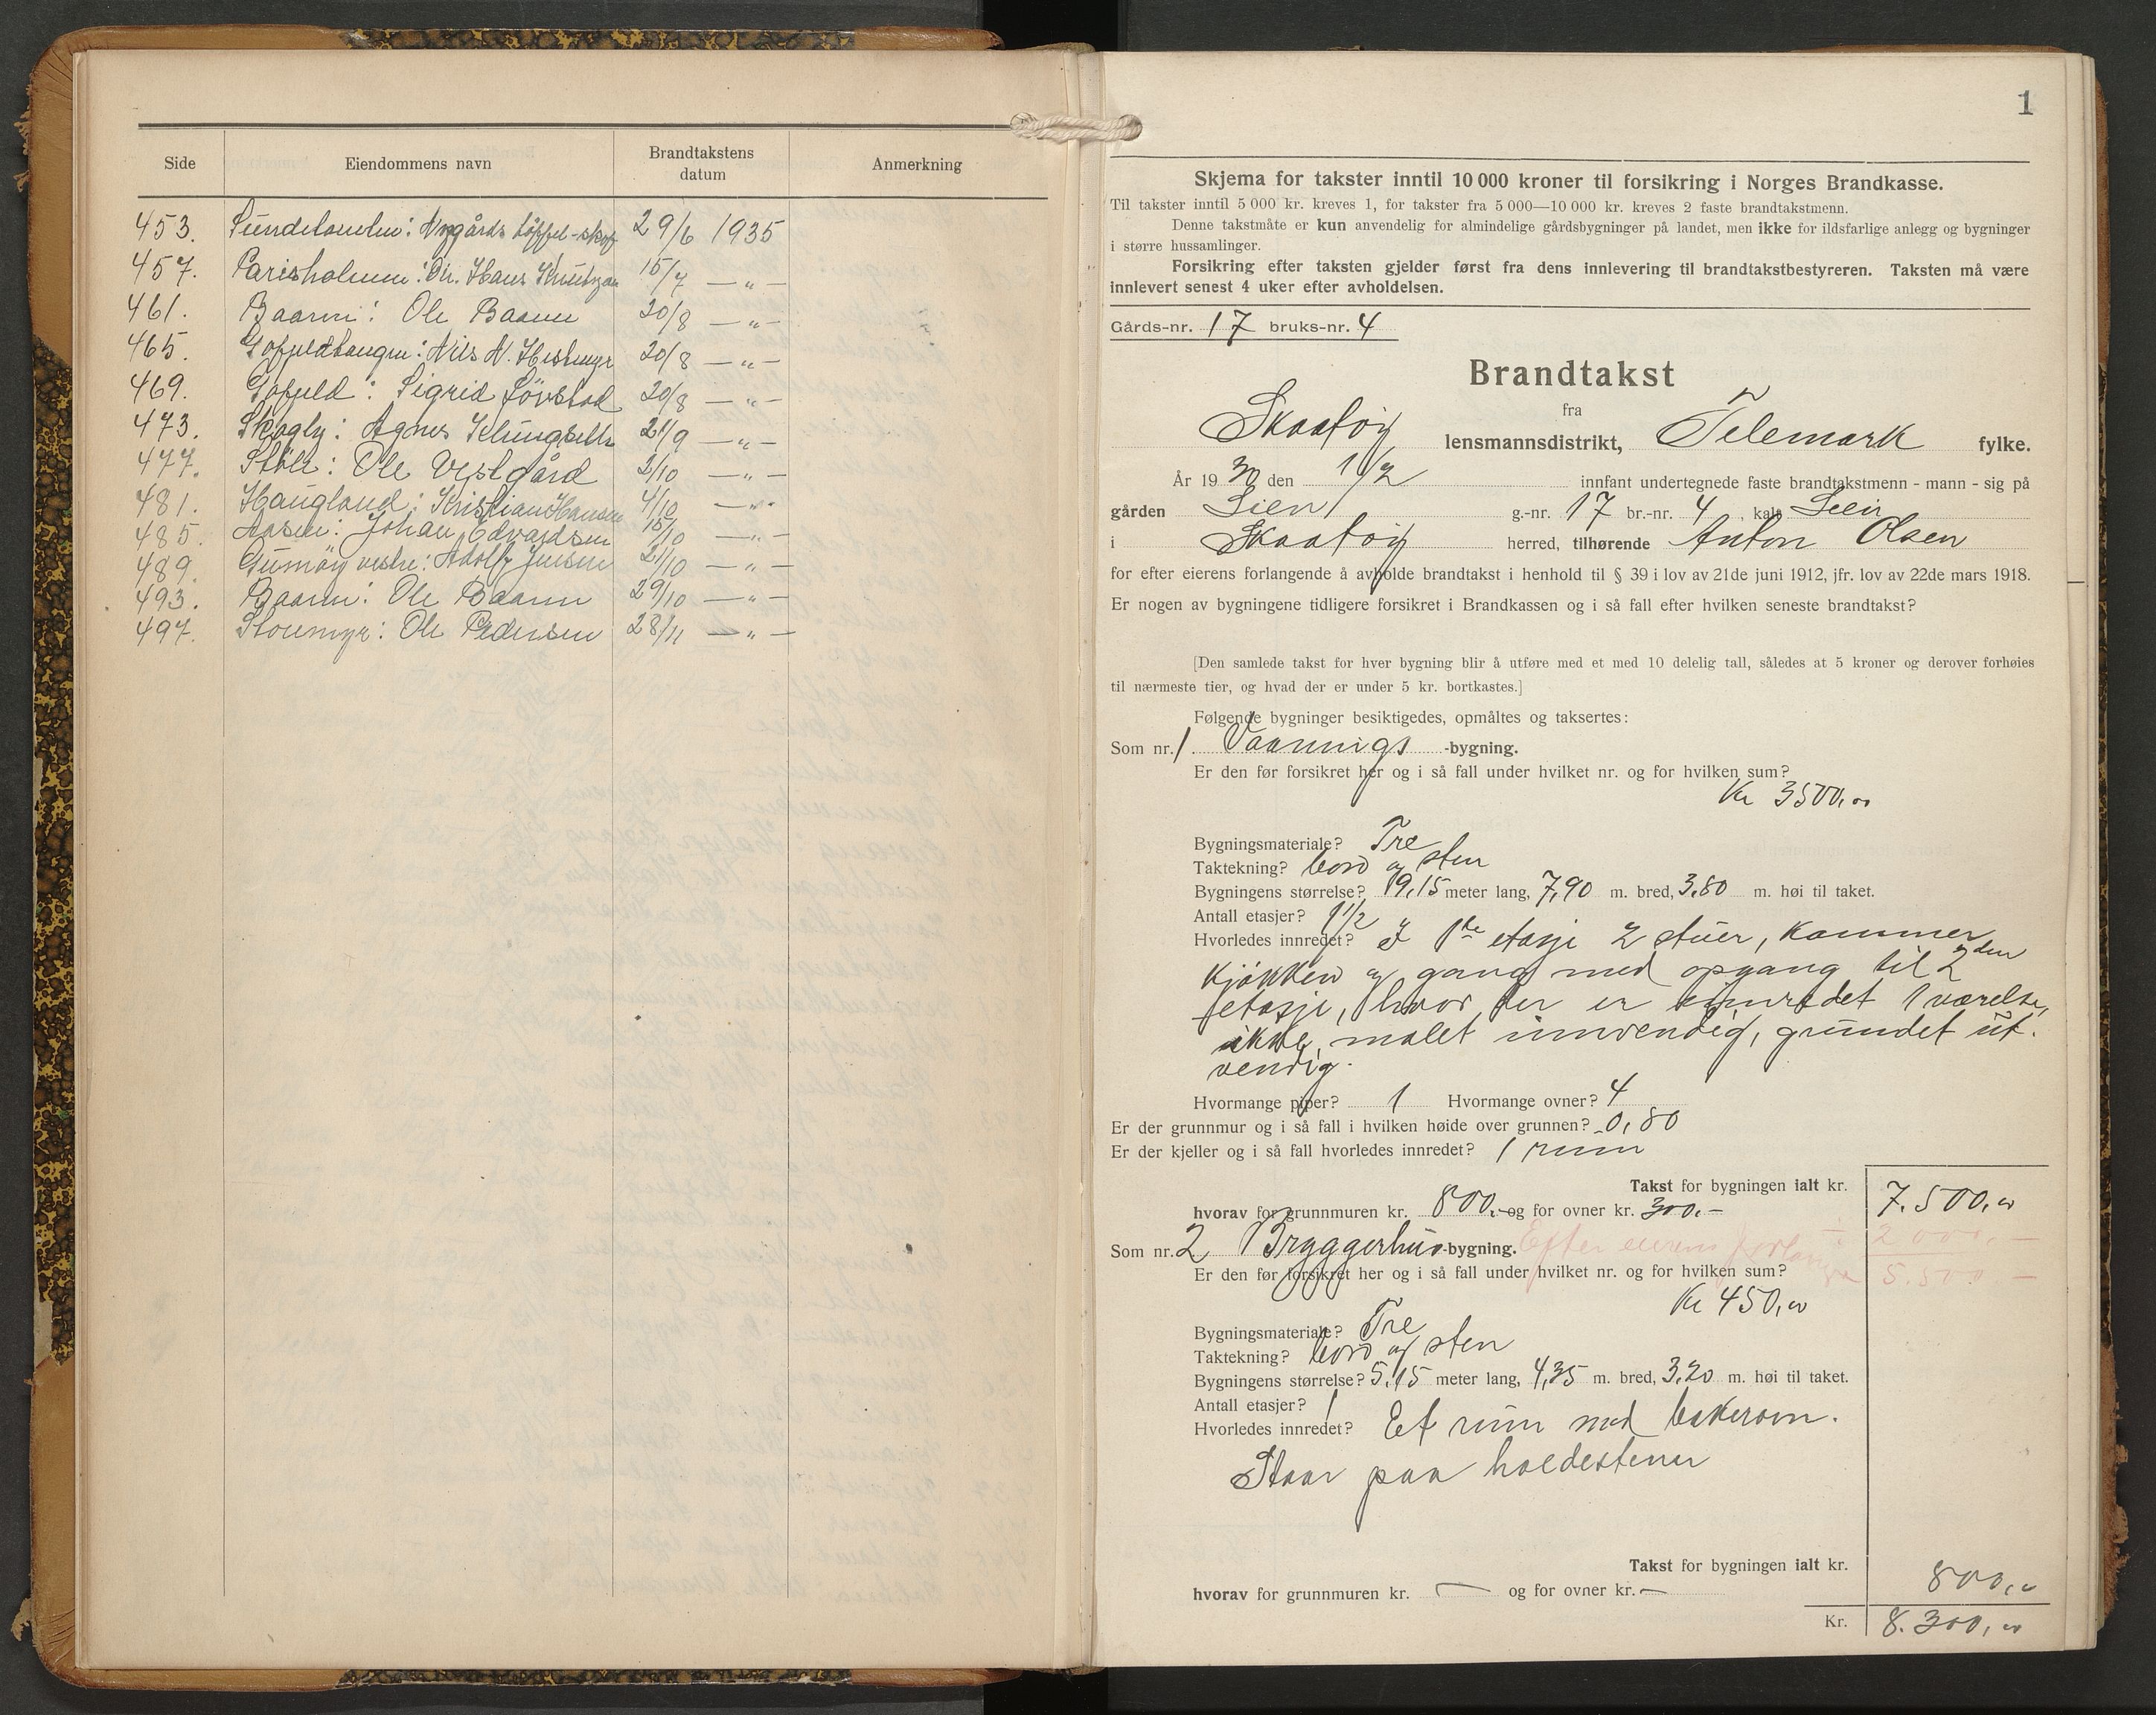 Side Eiendommens navn Brandtakstens datum Anmerkning
453. 29/6 1935
457. Parisholmen: Dir. Hans Knutzen 15/7 — " —
461. Baarm: Ole Baarm 20/8 — " —
465. Gofjeldtangen: Nils N. 20/8 — " —
469. Gofjeld: Sigrid Lövstad 20/8 — " —
473. Skogly: Agnes 21/9 — " —
477. Stölt: Ole Vestgård 2/10 — " —
481. Haugland: Kristian Hansen 4/10 — " —
485. Aasen: Johan Edvardsen 15/10 — " —
489. Gumöy vestre: Adolf Jensen 21/10 — " —
493. Baarm: Ole Baarm 29/10 — " —
497. Storemyr: Ole Pedersen 28/11 — " —
1
Skjema for takster inntil 10 000 kroner til forsikring i Norges Brandkasse.
Til takster inntil 5 000 kr. kreves 1, for takster fra 5 000—10 000 kr. kreves 2 faste brandtakstmenn.
Denne takstmåte er kun anvendelig for almindelige gårdsbygninger på landet, men ikke for ildsfarlige anlegg og bygninger
i større hussamlinger.
Forsikring efter taksten gjelder først fra dens innlevering til brandtakstbestyreren. Taksten må være
innlevert senest 4 uker efter avholdelsen.
Gårds-nr. 17 bruks-nr. 4
Brandtakst
fra
Skaatöy lensmannsdistrikt, Telemark fylke.
År 1930 den 1/2 innfant undertegnede faste brandtakstmenn - mann - sig på
gården Lien g.-nr. 17 br.-nr. 4, kalt Lien
i Skaatöy herred, tilhørende Anton Olsen
for efter eierens forlangende å avholde brandtakst i henhold til § 39 i lov av 21de juni 1912, jfr. lov av 22de mars 1918.
Er nogen av bygningene tidligere forsikret i Brandkassen og i så fall efter hvilken seneste brandtakst?
[Den samlede takst for hver bygning blir å utføre med et med 10 delelig tall, således at 5 kroner og derover forhøies
til nærmeste tier, og hvad der er under 5 kr. bortkastes.]
Følgende bygninger besiktigedes, opmåltes og taksertes:
Som nr. 1. Vaanings -bygning.
Er den før forsikret her og i så fall under hvilket nr. og for hvilken sum?
Kr 3500,00
Bygningsmateriale? Tre
Taktekning? bord og sten
Bygningens størrelse? 9,15 meter lang, 7,90 m. bred, 3,80 m. høi til taket.
Antall etasjer? 1 1/2
Hvorledes innredet? I 1ste etasje 2 stuer, kammer
kjökken og gang med opgang til 2den
etasje, hvor der er innredet 1 værelse,
ikke malet innvendig, grundet ut.
vendig.
Hvormange piper? 1 Hvormange ovner? 4
Er der grunnmur og i så fall i hvilken høide over grunnen? 0,80
Er der kjeller og i så fall hvorledes innredet? 1 rum
Takst for bygningen ialt kr. 7.500,00
hvorav for grunnmuren kr. 800.- og for ovner kr. 300.-
÷ 2000,—
Som nr. 2 Bryggerhus -bygning. Efter eierens forlangende
5.500 —
Er den før forsikret her og i så fall under hvilket nr. og for hvilken sum?
Kr 450,00
Bygningsmateriale? Tre
Taktekning? bord og sten
Bygningens størrelse? 5,15 meter lang, 4,35 m. bred, 3,20 m. høi til taket.
Antall etasjer? 1
Hvorledes innredet? Et rum med bakerovn.
Staar paa holdestener
Takst for bygningen ialt kr. 800,00
hvorav for grunnmuren kr. — og for ovner kr. —
Kr. 8.300,00